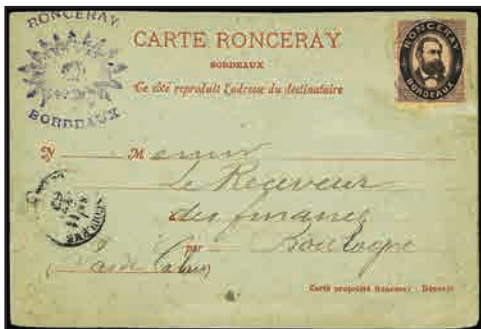 RONCERAY
BORDEAUX
CARTE RONCERAY
BORDEAUX
Ce côté reproduit l'adresse du destinataire
RONCERAY
BORDEAUX
M
Le Receveur
des finances
par Boulogne
(Pas de Calais)
Carte propriété Ronceray - Déposée